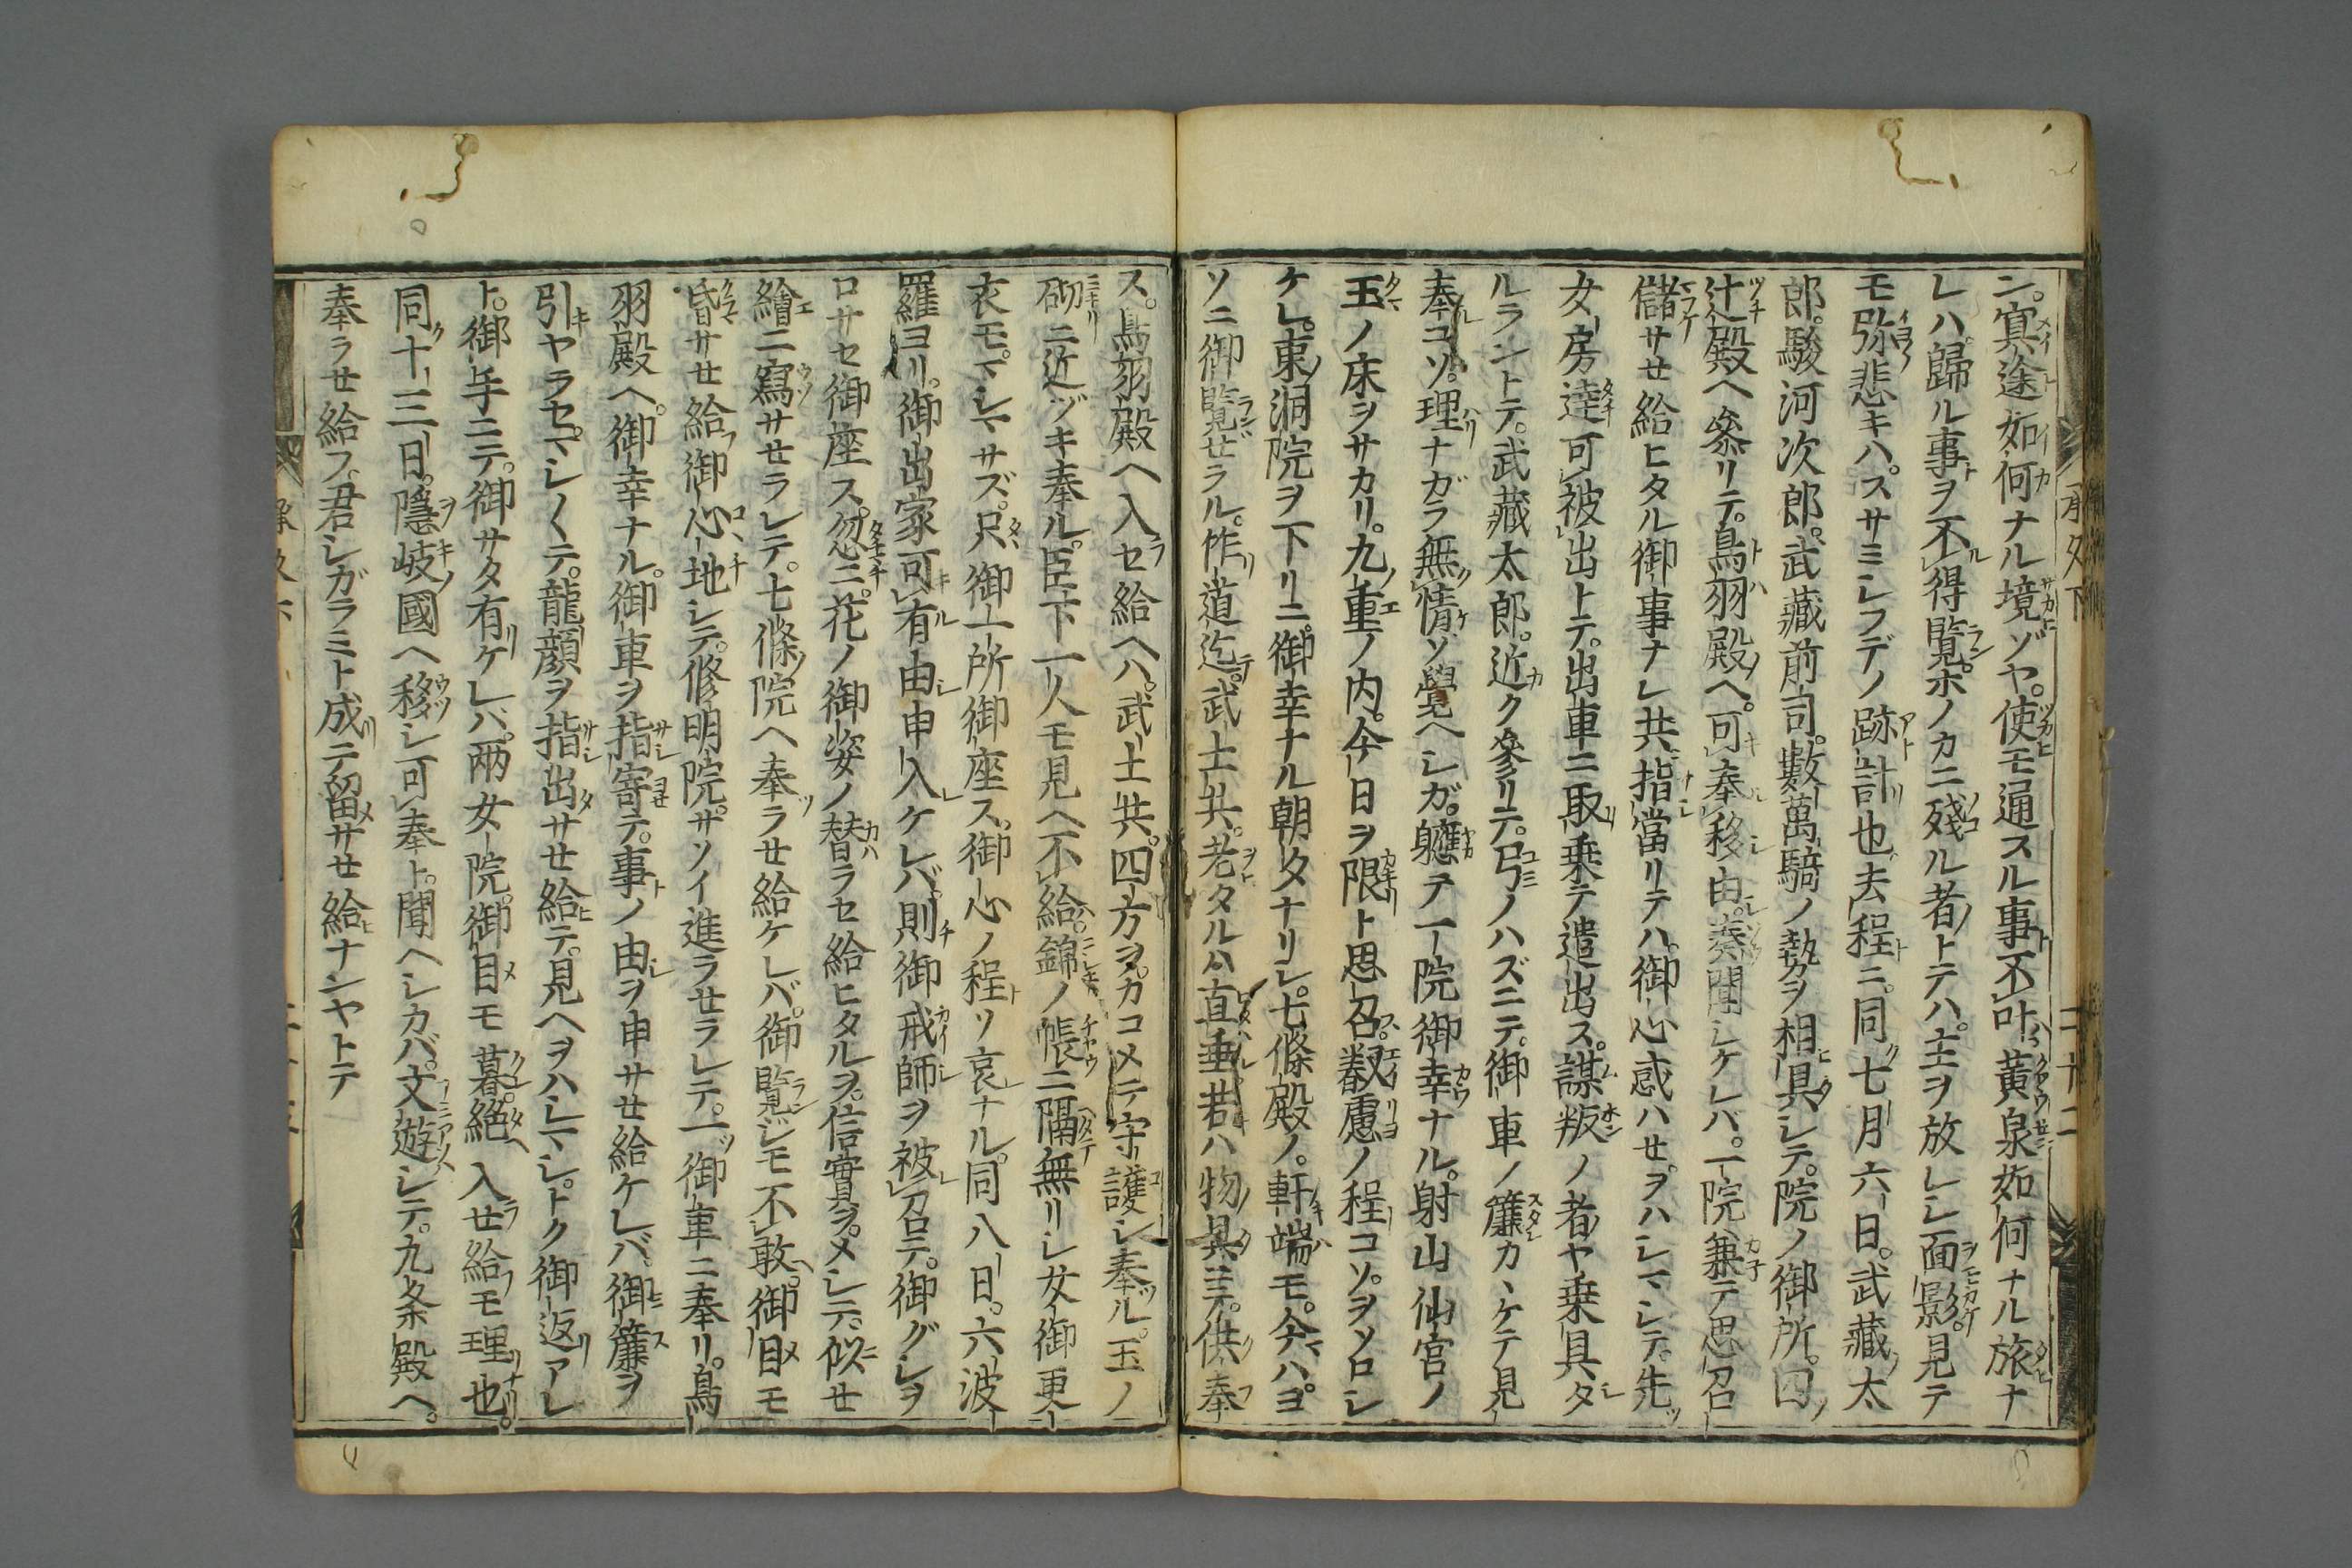 ニ。冥途如何ナル境ゾヤ。使モ通スル事不叶。黄泉如何ナル旅ナ
レハ。歸ル事ヲ不得覧。ホノカニ殘ル者トテハ。主ヲ放レシ面影。見テ
モ弥悲キハ。スサミシフデノ跡計也。去程ニ。同七月六日。武藏太
郎。駿河次郎。武藏前司。數萬騎ノ勢ヲ相具シテ。院ノ御所。四
辻殿ヘ參リテ。鳥羽殿ヘ。可奉移由。奏聞シケレバ。一院兼テ思召
儲サセ給ヒタル御事ナレ共。指當リテハ。御心惑ハセヲハシマシテ。先
女房達可被出トテ。出車ニ取乗テ遣出ス。謀叛ノ者ヤ乗具タ
ルラントテ。武藏太郎。近ク參リテ。弓ノハズニテ。御車ノ簾カヽケテ見
奉コソ。理ナガラ無情ゾ覺ヘシガ。軈テ一院御幸ナル。射山仙宮ノ
玉ノ床ヲサカリ。九重ノ内。今日ヲ限ト思召。叡慮ノ程コソ。ヲソロシ
ケレ。東洞院ヲ下リニ。御幸ナル。朝夕ナリシ。七條殿ノ。軒端モ。今ハ。ヨ
ソニ御覧セラル。作道迄。武士共。老タルハ直垂。若ハ物具ニテ。供奉
ス。鳥羽殿ヘ入セ給ヘハ。武士共。四方ヲ。カコメテ守護シ奉ル。玉ノ
砌ニ近ヅキ奉ル。臣下一人モ見ヘ不給。錦ノ帳ニ隔無リシ女御更
衣モ。マシマサズ。只御一所御座ス。御心ノ程ソ哀ナル。同八日。六波
羅ヨリ。御出家可有由申入ケレバ。則御戒師ヲ被召テ。御グシヲ
ロサセ御座ス。忽ニ花ノ御姿ノ替ラセ給ヒタルヲ。信實ヲ。メシテ。似セ
繪ニ寫サセラレテ。七條院ヘ奉ラセ給ケレバ。御覧ジモ不敢。御目モ
昏サセ給フ御心地シテ。修明院。サソイ進ラセラレテ。一御車ニ奉リ。鳥
羽殿ヘ。御幸ナル。御車ヲ指寄テ。事ノ由ヲ申サセ給ケレバ。御簾ヲ
引ヤラセマシ〱テ。龍顔ヲ指出サセ給テ。見ヘヲハシマシ。トク御返アレ
ト。御手ニテ。御サタ有ケレバ。兩女院。御目モ暮。絶入セ給フモ理也。
同十三日。隱岐國ヘ移シ可奉ト。聞ヘシカバ。文遊シテ。九条殿ヘ。
奉ラセ給フ。君シガラミト成テ留サセ給ナンヤトテ